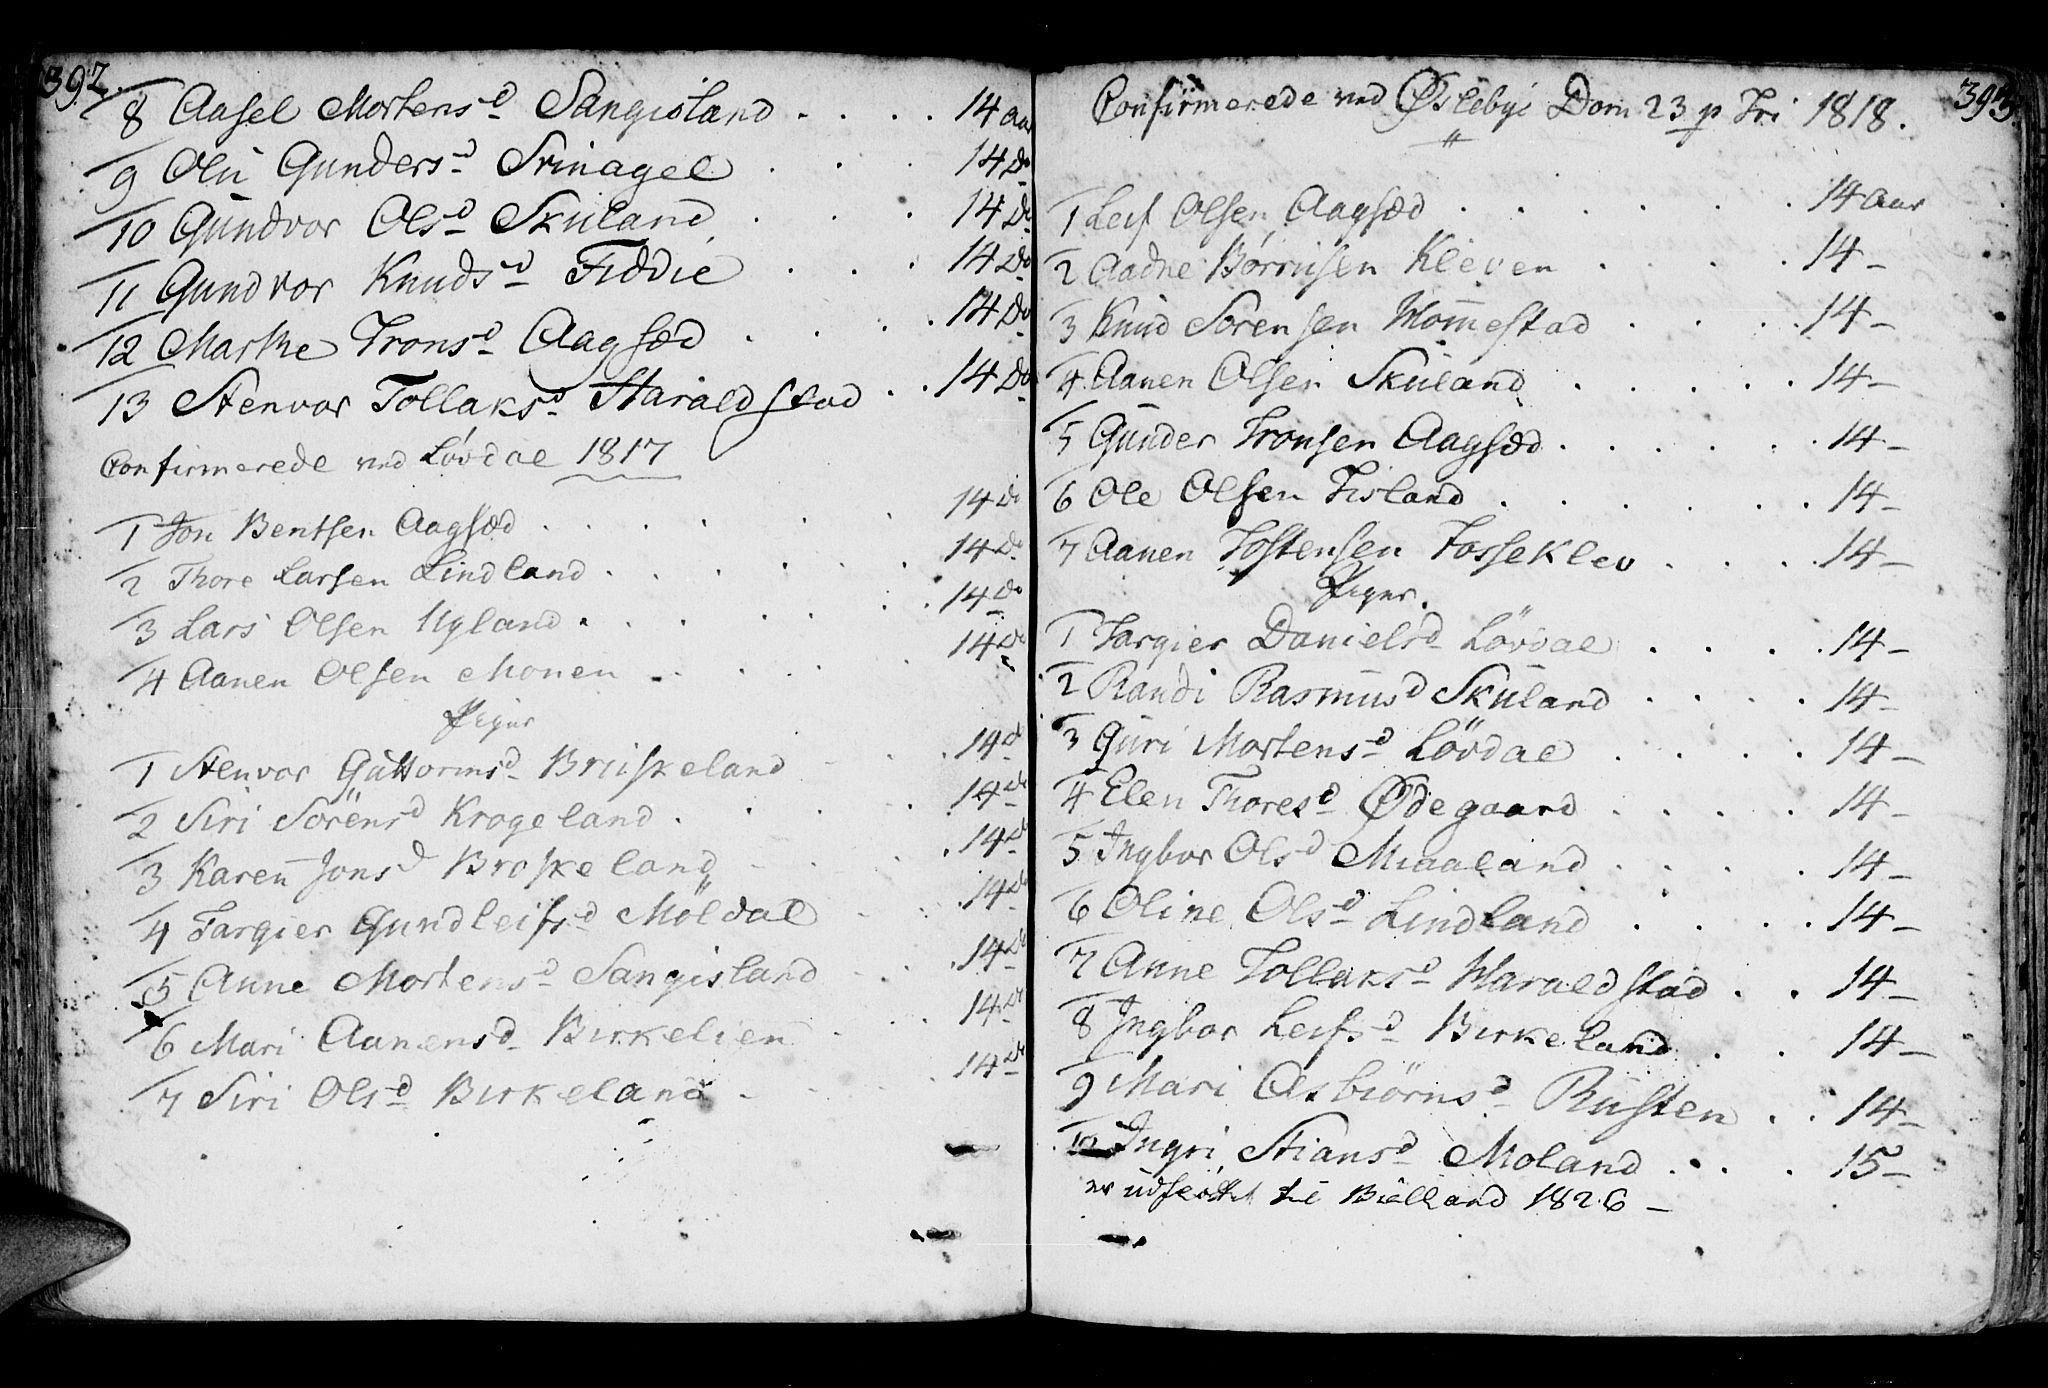 392.
8 Aasel Mortensd Sangisland . . . . 14 aar
9 Olu Gundersd Trinagel . . . 14 Do
10 Gundvor Olsd Skuland . . . 14 Do
11 Gundvor Knudsd Fiddie . . . 14 Do
12 Marthe Tronsd Aagsæd . . . . 14 Do
13 Stenvor Tollaksd Haraldstad . . 14 Do
Confirmerede ved Løvdal 1817
1 Jon Bentsen Aagsæd . . . . . . 14 Do
2 Thore Larsen Lindland . . . . . . 14 Do
3 Lars Olsen Uyland . . . . . . 14 Do
4 Aanen Olsen Monen . . . . 14 Do
Piger
1 Stenvor Guttormsd Bruskeland . 14 do
2 Siri Sörensd Krogeland . . . . 14 do
3 Karen Jonsd Broskeland . . . 14 do
4 Targier Gundleifsd Möldal . . 14 Do
5 Anne Mortensd Sangisland . . . 14 Do
6 Mari Aanensd Birkelien . . . 14 Do
7 Siri Olsd Birkeland . . . 14 Do
393.
Confirmerede ved Øslebye Dom 23 p Tri 1818.
1 Leif Olsen Aagsæd . . . . . . 14 aar
2 Aadne Börrusen Kleven . . . . 14 –
3 Knud Sörensen Hommestad . . . . 14 –
4 Aanen Olsen Skuland . . . . . 14 –
5 Gunder Tronsen Aagsæd . . . . . 14 –
6 Ole Olsen Tisland . . . . . . 14 –
7 Aanen Tostensen Fosseklev . . . . 14 –
Piger.
1 Targier Danielsd Lövdal . . . . 14 –
2 Randi Rasmusd Skuland . . . . 14 –
3 Guri Mortensd Lövdal . . . . 14 –
4 Elen Thoresd Ødegaard . . . . 14 –
5 Ingbor Olsd Miaaland . . . . 14 –
6 Oline Olsd Lindland . . . . 14 –
7 Anne Tollaksd Haraldstad . . 14 –
8 Ingbor Leifsd Birkeland . . 14 –
9 Mari Asbiörnsd Rusten . . 14 –
10 Ingri Stiansd Moland . . . . 15 –
er udflöttet til Bielland 1826 –